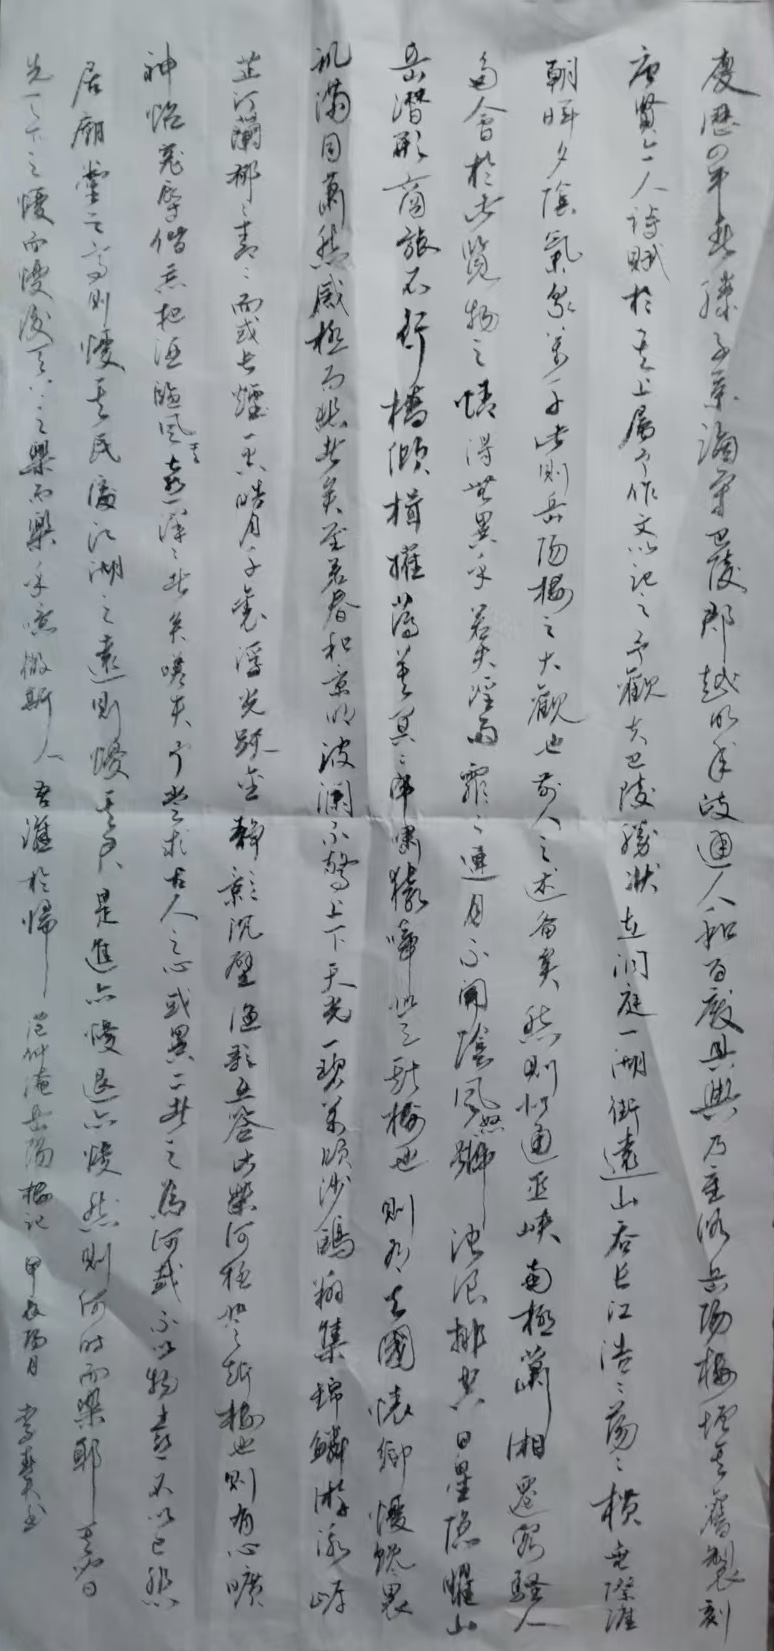 慶歷四年春滕子京謫守巴陵郡越明年政通人和百廢具興乃重修岳陽樓增其舊製刻
唐賢今人詩賦於其上屬予作文以記之予觀夫巴陵勝狀在洞庭一湖銜遠山吞長江浩浩蕩蕩橫無際涯
朝暉夕陰氣象萬千此則岳陽樓之大觀也前人之述備矣然則北通巫峽南極瀟湘遷客騷人
多會於此覽物之情得無異乎若夫淫雨霏霏連月不開陰風怒號濁浪排空日星隱耀山
岳潛形商旅不行檣傾楫摧薄暮冥冥虎嘯猿啼登斯樓也則有去國懷鄉憂讒畏
譏滿目蕭然感極而悲者矣至若春和景明波瀾不驚上下天光一碧萬頃沙鷗翔集錦鱗游泳岸
芷汀蘭郁郁青青而或長煙一空皓月千里浮光躍金靜影沉璧漁歌互答此樂何極登斯樓也則有心曠
神怡寵辱偕忘把酒臨風其喜洋洋者矣嗟夫予嘗求古人之心或異二者之為何哉不以物喜不以己悲
居廟堂之高則憂其民處江湖之遠則憂其君是進亦憂退亦憂然則何時而樂耶其必曰
先天下之憂而憂後天下之樂而樂乎噫微斯人吾誰於歸 范仲淹岳陽樓記 甲辰陽月 李